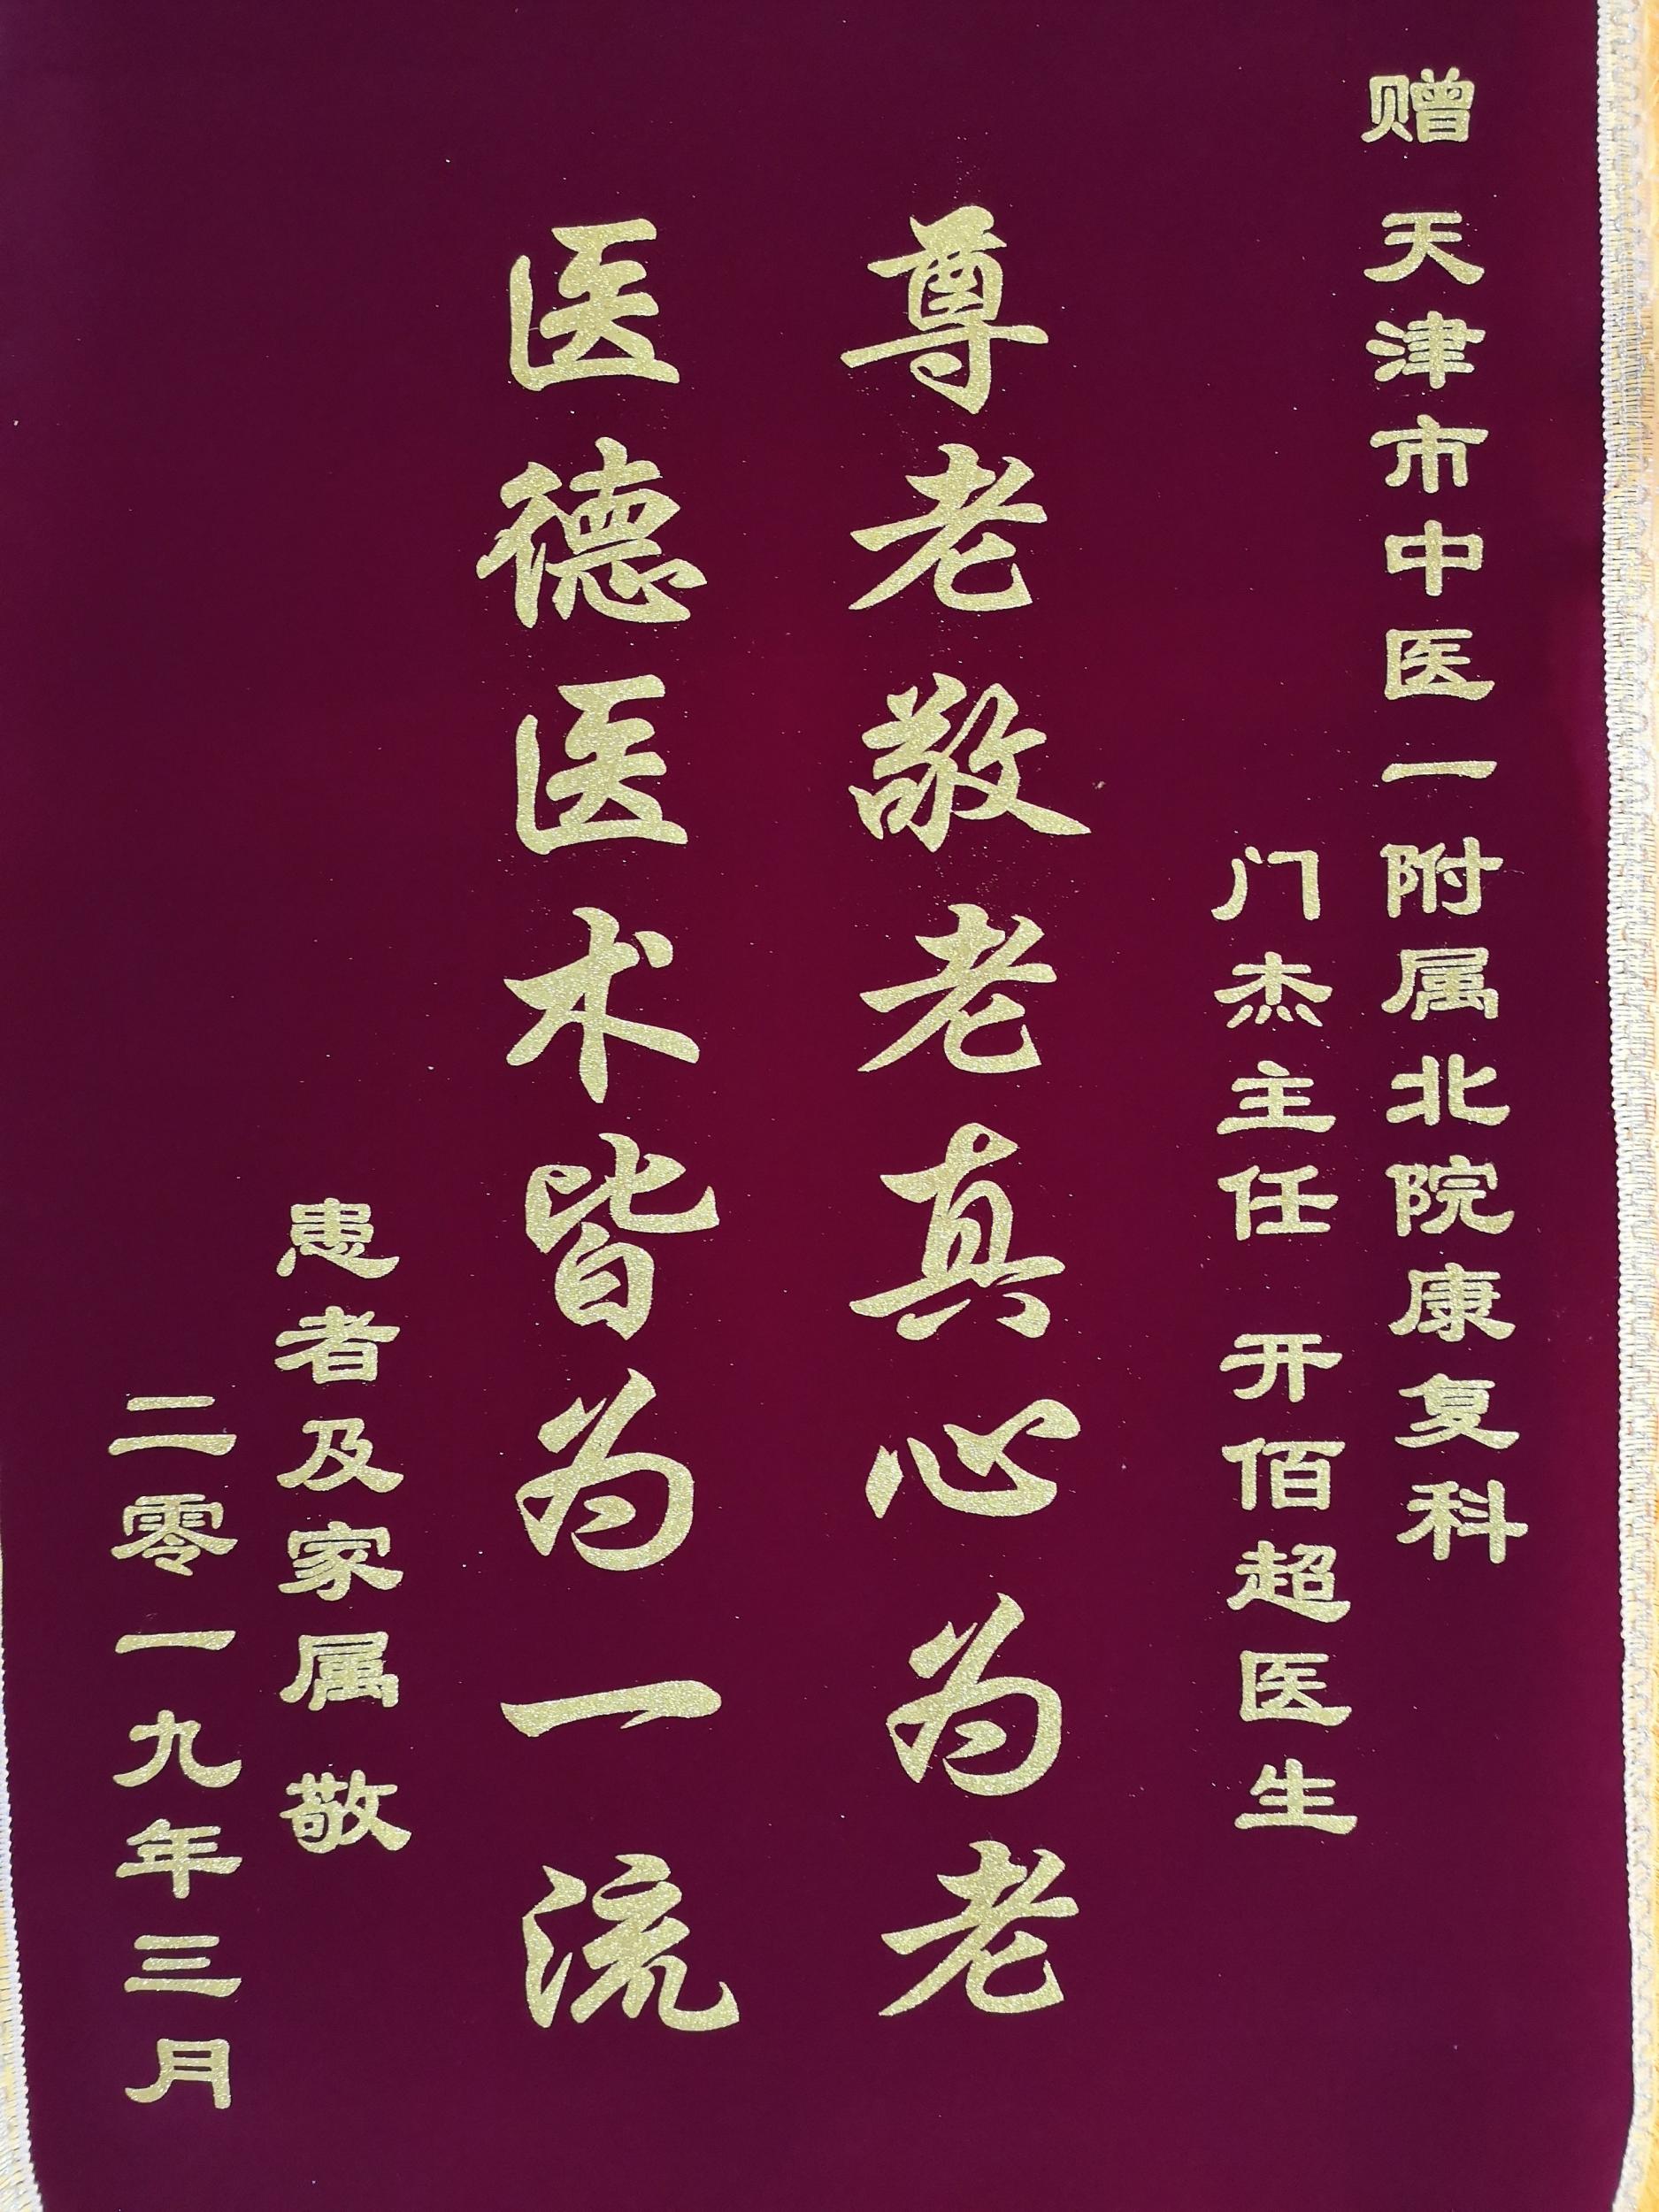 赠 天津市中医一附属北院康复科
门杰主任 开佰超医生
尊老敬老真心为老
医德医术皆为一流
患者及家属 敬
二零一九年三月